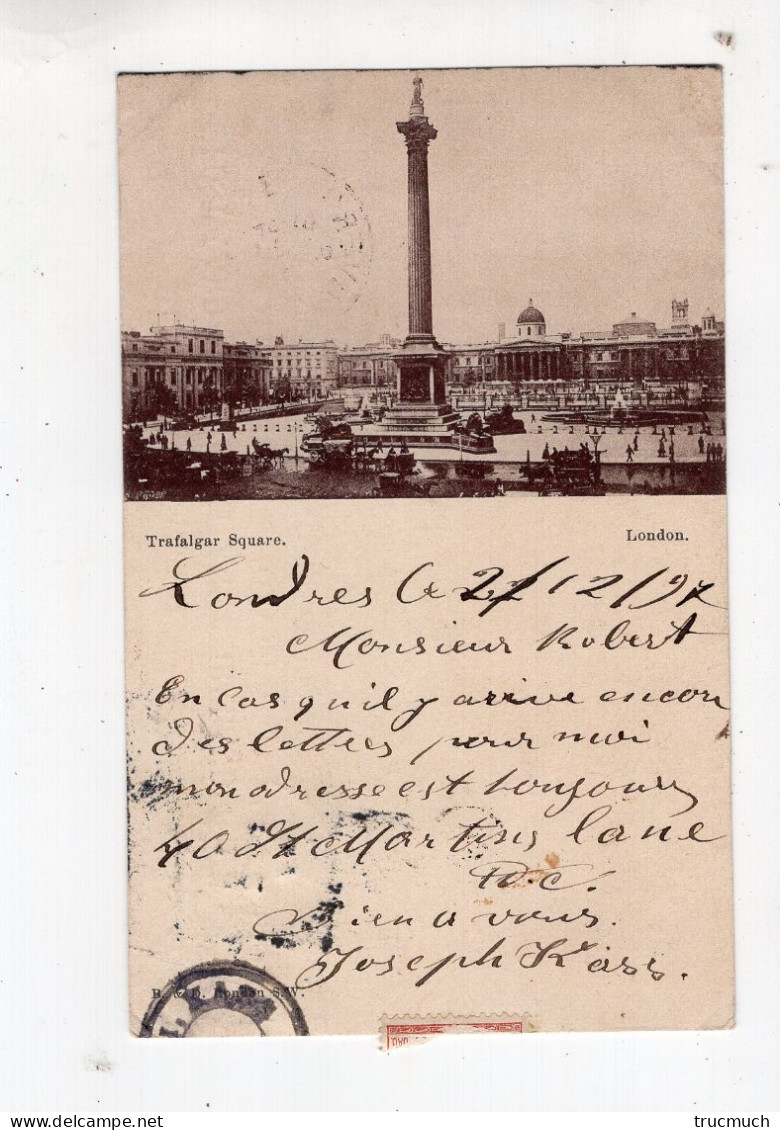 Trafalgar Square. London.
Londres le 22/12/97
Monsieur Robert
En cas qu'il y arrive encor
des lettres pour moi
mon adresse est toujours
40 St Martins Lane
W.C.
Bien a vous.
Joseph Kass.
R. & D. London S.W.
trucmuch Delcampe.net